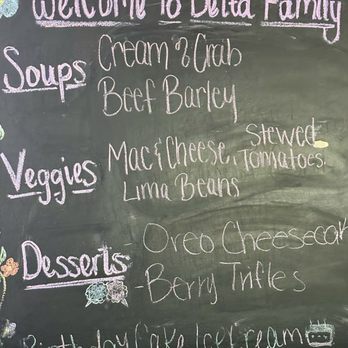 Welcome To Delta Family
Soups
Cream of Crab
Beef Barley
Veggies
Mac & Cheese, Stewed Tomatoes
Lima Beans
Desserts
- Oreo Cheesecak
- Berry Trifles
Birthday Cake Ice Cream